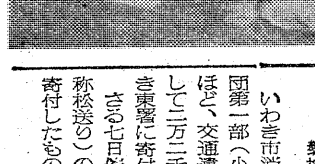 いわき市消
団第一部（小
ほど、交通遺
して二万二千
き東署に寄付
さる七日 
称松送り）の
寄付したもの